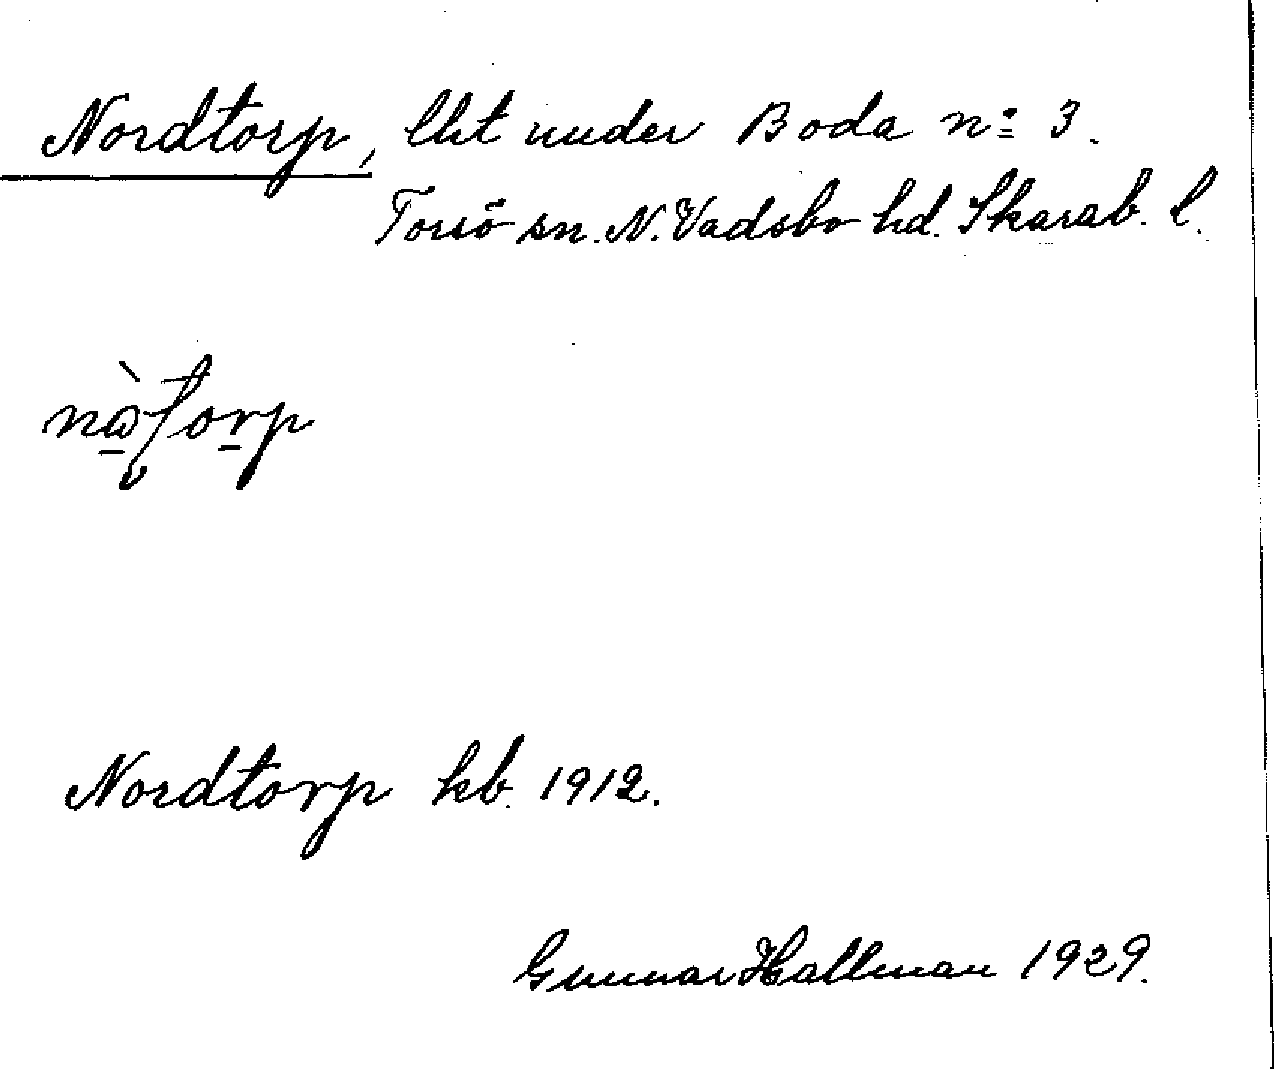 Nordtorp, lht under Boda n:o 3.
Torsö sn. N. Vadsbo hd. Skarab. l.
Nordtorp kb. 1912.
Gunnar Hallman 1929.